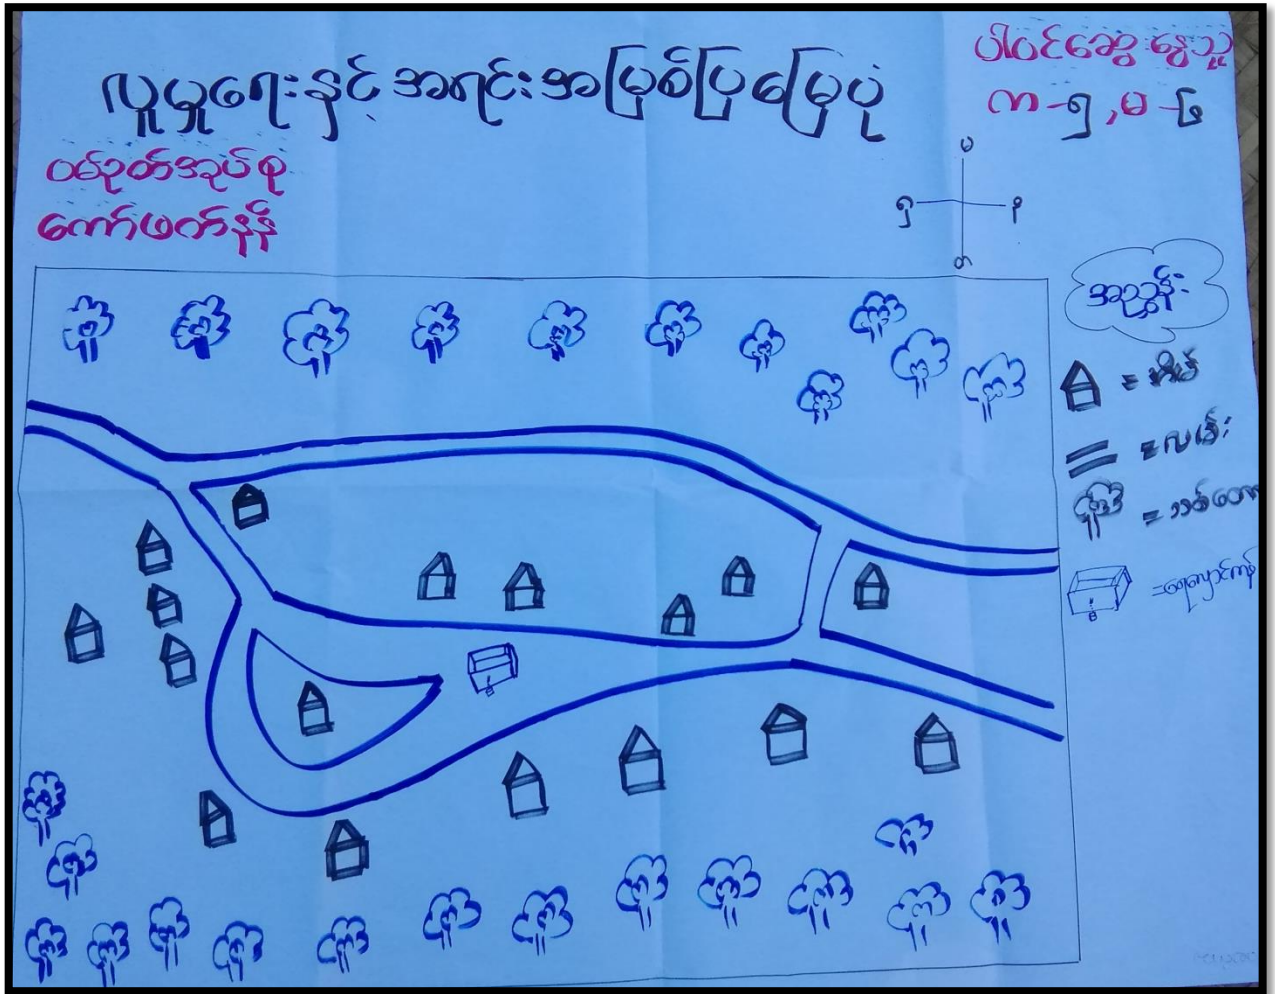 လူမှုရေးနှင့် အရင်းအမြစ်ပြမြေပုံ
ပါဝင်ဆွေးနွေးသူ
ကျ-၅, မ-၆
ဝမ်ဒုတ်အုပ်စု
ကော်ဖက်နန်
အညွှန်း
= အိမ်
= လမ်း
= သစ်တော
= ရေလှောင်ကန်